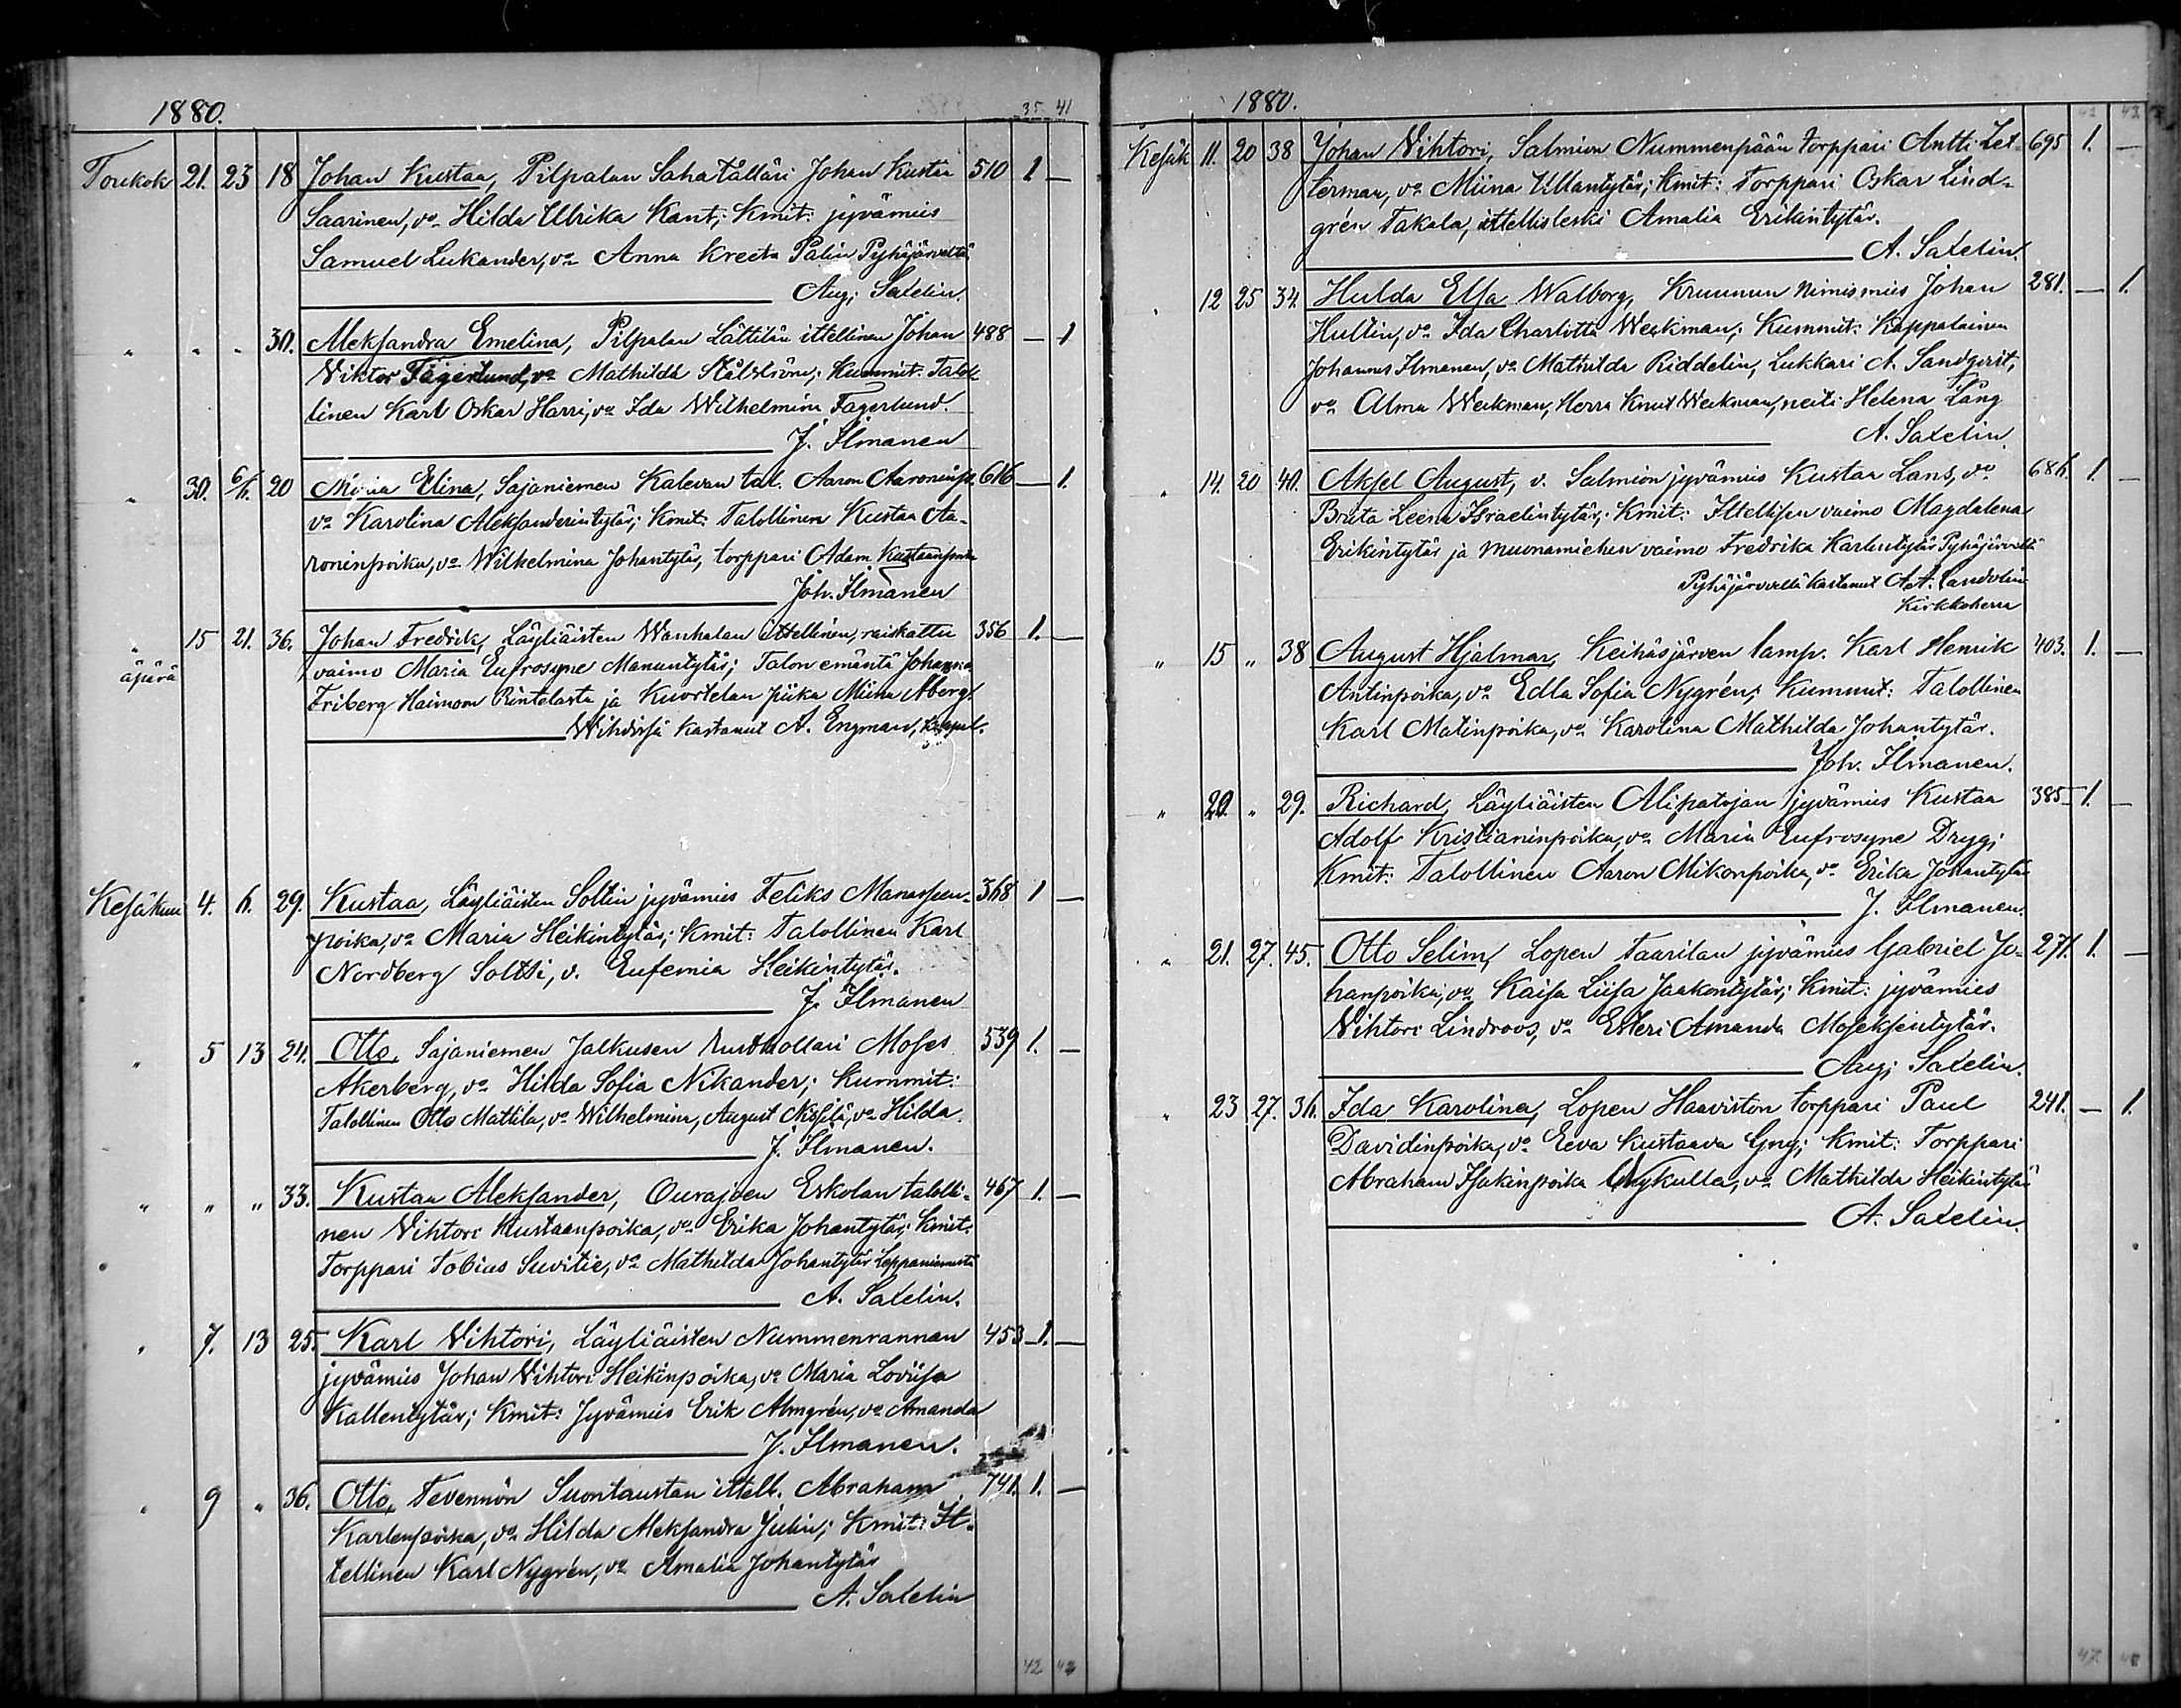 1880. 35 41
Toukok 21. 23 18 Johan Kustaa, Pilpalan Sahatålläri Johan Kustaa 510 1 —
Saarinen, vo Hilda Ulrika Kant; Kmit: jyvämies
Samuel Lukander, vo Anna Kreeta Palin Pyhäjärveltä
Aug. Saxelin.
" " " 30. Aleksandra Emelina, Pilpalan Lättilän ittellinen Johan 488 — 1
Viktor Fagerlund, vo Mathilda Stålström; Kummit: Talol
linen Karl Oskar Harri, vo Ida Wilhelmina Fagerlund.
J. Ilmanen
" 30. 6/6. 20 Maria Elina, Sajaniemen Kalevan tal. Aaron Aaroninp. 616 — 1.
vo Karolina Aleksanderintytär; Kmit: Talollinen Kustaa Aa-
roninpoika, vo Wilhelmina Johantytär, torppari Adam Kustaanpoika
Joh. Ilmanen
" 15 21. 36. Johan Fredrik, Läyliäisten Wanhalan ittellinen, raiskattu 356 1. —
äpärä vaimo Maria Eufrosyne Manuntytär; Talon emäntä Johanna
Friberg Haimoon Rintelasta ja Kuortelan piika Miina Åberg.
Wihdissä kastanut A. Engman, kappal.
Kesäkuu 4. 6. 29. Kustaa, Läyliäisten Soltin jyvämies Feliks Manassen- 368 1 —
poika, vo Maria Heikintytär; Kmit: Talollinen Karl
Nordberg Soltti, v. Eufemia Heikintytär.
J. Ilmanen
" 5 13 24. Otto, Sajaniemen Jalkusen rusthollari Moses 539 1. —
Åkerberg, vo Hilda Sofia Nikander; Kummit:
Talollinen Otto Mattila, vo Wilhelmina, August Nissilä, vo Hilda.
J. Ilmanen.
" " " 33. Kustaa Aleksander, Ourajoen Eskolan talolli- 467 1. —
nen Vihtori Kustaanpoika, vo Erika Johantytär; Kmit:
Torppari Tobias Suvitie, vo Mathilda Johantytär Leppäniemestä
A. Saxelin.
" 7. 13 25. Karl Vihtori, Läyliäisten Nummenrannan 453 1. —
jyvämies Johan Vihtori Heikinpoika, vo Maria Loviisa
Kallentytär; Kmit: Jyvämies Erik Almgrén, vo Amanda
J. Ilmanen.
" 9 " 36. Otto, Tevännön Suontaustan ittell. Abraham 741. 1. —
Karlenpoika, vo Hilda Aleksandra Julin; Kmit: It-
tellinen Karl Nygrén, vo Amalia Johantytär
A. Saxelin
42 43
1880. 42 43
Kesäk 11. 20 38 Johan Vihtori, Salmion Nummenpään torppari Antti Zet- 695 1. —
terman, vo Miina Villantytär; Kmit: Torppari Oskar Lind-
grén Takala, ittellisleski Amalia Erikintytär.
A. Saxelin.
" 12 25 34. Hulda Elsa Walborg, Kruunun Nimismies Johan 281. — 1.
Hultin, vo Ida Charlotta Weckman; Kummit: Kappalainen
Johannes Ilmanen, vo Mathilda Riddelin, Lukkari A. Sandqvist,
vo Alma Weckman, Herra Knut Weckman, neiti Helena Lång
A. Saxelin.
" 14. 20 40. Aksel August, v. Salmion jyvämies Kustaa Lans, vo 686 1. —
Bruta Leena Israelintytär; Kmit: Ittellisen vaimo Magdalena
Erikintytär ja muonamiehen vaimo Fredrika Karlintytär Pyhäjärveltä
Pyhäjärvellä kastanut A. A. Candolin
Kirkkoherra
" 15 " 38 August Hjalmar, Keihäsjärven lamp. Karl Henrik 403. 1. —
Antinpoika, vo Edla Sofia Nygrén; Kummit: Talollinen
Karl Matinpoika, vo Karolina Mathilda Johantytär.
Joh. Ilmanen.
" 20. " 29. Richard, Läyliäisten Alipatojan jyvämies Kustaa 385 1. —
Adolf Kristianinpoika, vo Maria Eufrosyne Dryg;
Kmit: Talollinen Aaron Mikonpoika, vo Erika Johantytär
J. Ilmanen.
" 21. 27. 45. Otto Selim, Lopen Taarilan jyvämies Gabriel Jo- 271. 1. —
hanpoika, vo Kaisa Liisa Jaakontytär; Kmit: jyvämies
Vihtori Lindroos, vo Esteri Amanda Moseksentytär.
Aug. Saxelin.
" 23 27. 36. Ida Karolina, Lopen Haaviston torppari Paul 241. — 1.
Davidinpoika, vo Eeva Kustaava Gng; Kmit: Torppari
Abraham Isakinpoika Nykulla, vo Mathilda Heikintytär
A. Saxelin.
47 48